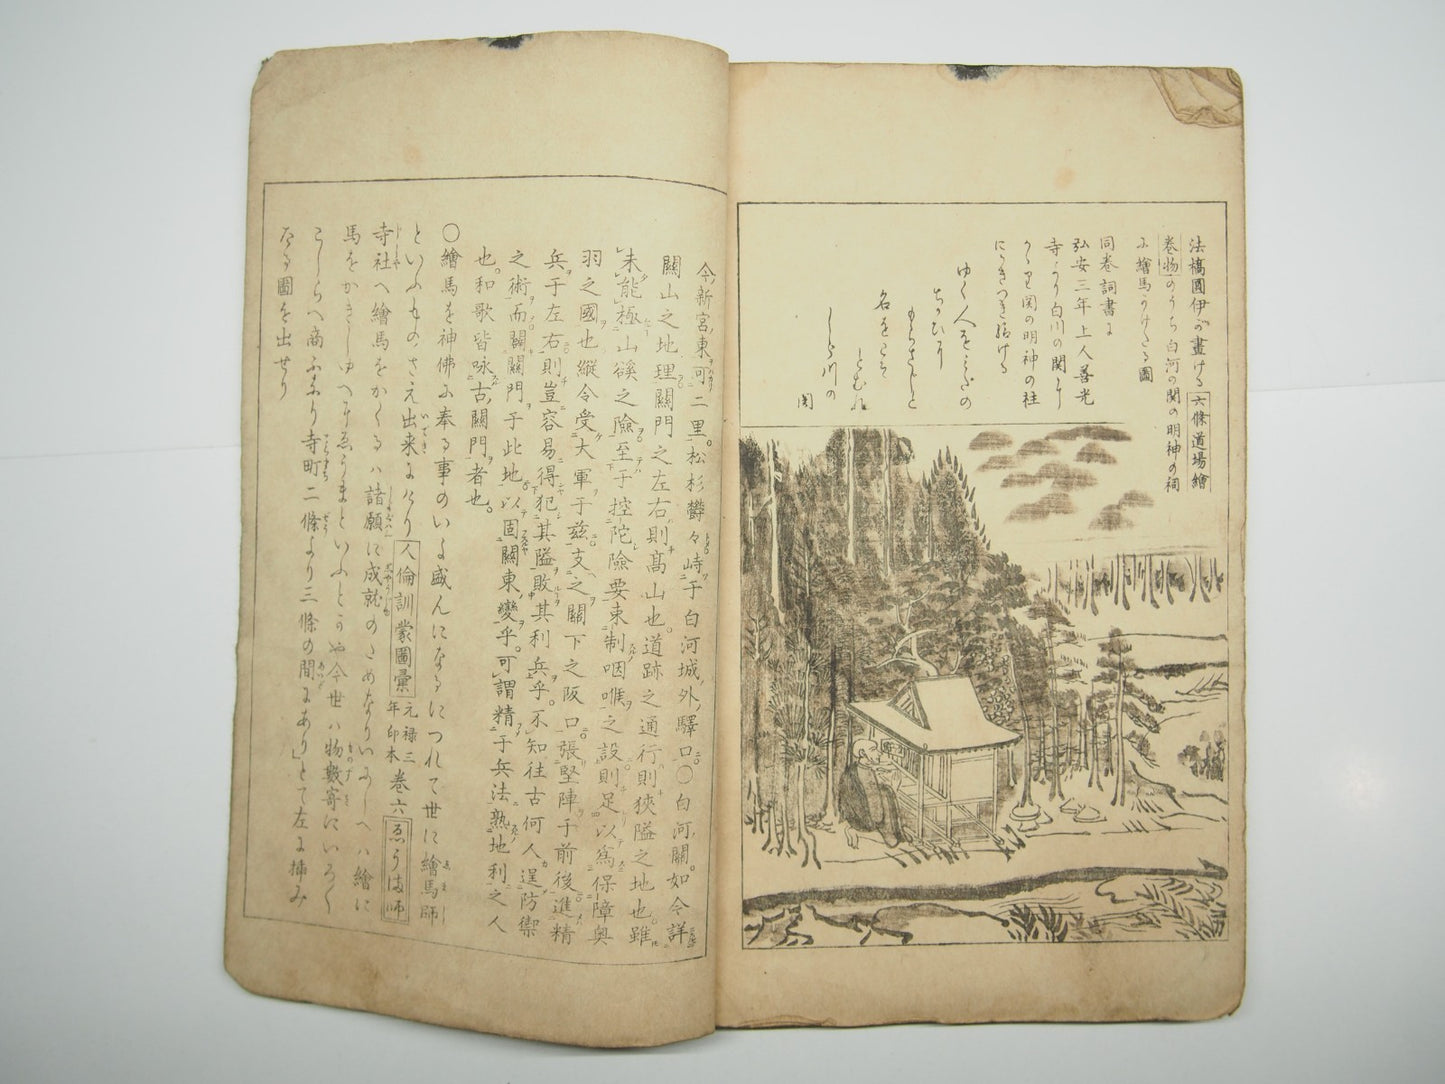 法橋圓伊が畫ける六條道場繪
巻物のうち白河の関の明神の祠
に繪馬かけたる圖
同巻詞書に
弘安三年上人善光
寺より白川の関にか
かり関の明神の柱
にかきつき給ける
ゆく人をみだの
ちかひに
もらさじと
名をこそ
とむれ
しら川の
関
今新宮東可二里松杉鬱々峙于白河城外驛口〇白河關如今詳
關山之地理關門之左右則髙山也道跡之通行則狹隘之地也雖
未能極山谿之險至于控陀險要東制咽喉之設則足以為保障奥
羽之國也縱令受大軍于茲支之關下之阪口張堅陣于前後進精
兵于左右則豈容易得犯其隘敗其利兵乎不知往古何人逞防禦
之術而開關門于此地以固關東變乎可謂精于兵法熟地利之人
也和歌皆咏古關門者也
〇繪馬を神佛に奉る事のいと盛んになるにつれて世に繪馬師
といふものさえ出来にけり人倫訓蒙圖彙元禄三年印本巻六ゑうま師
寺社へ繪馬をかくるハ諸願に成就のためなりいにしへハ繪に
馬をかきしゆへにゑうまといふとかや今世ハ物數寄にいろく
こしらへ商ふなり寺町二條より三條の間にあり」とて左に挿み
たる圖を出せり